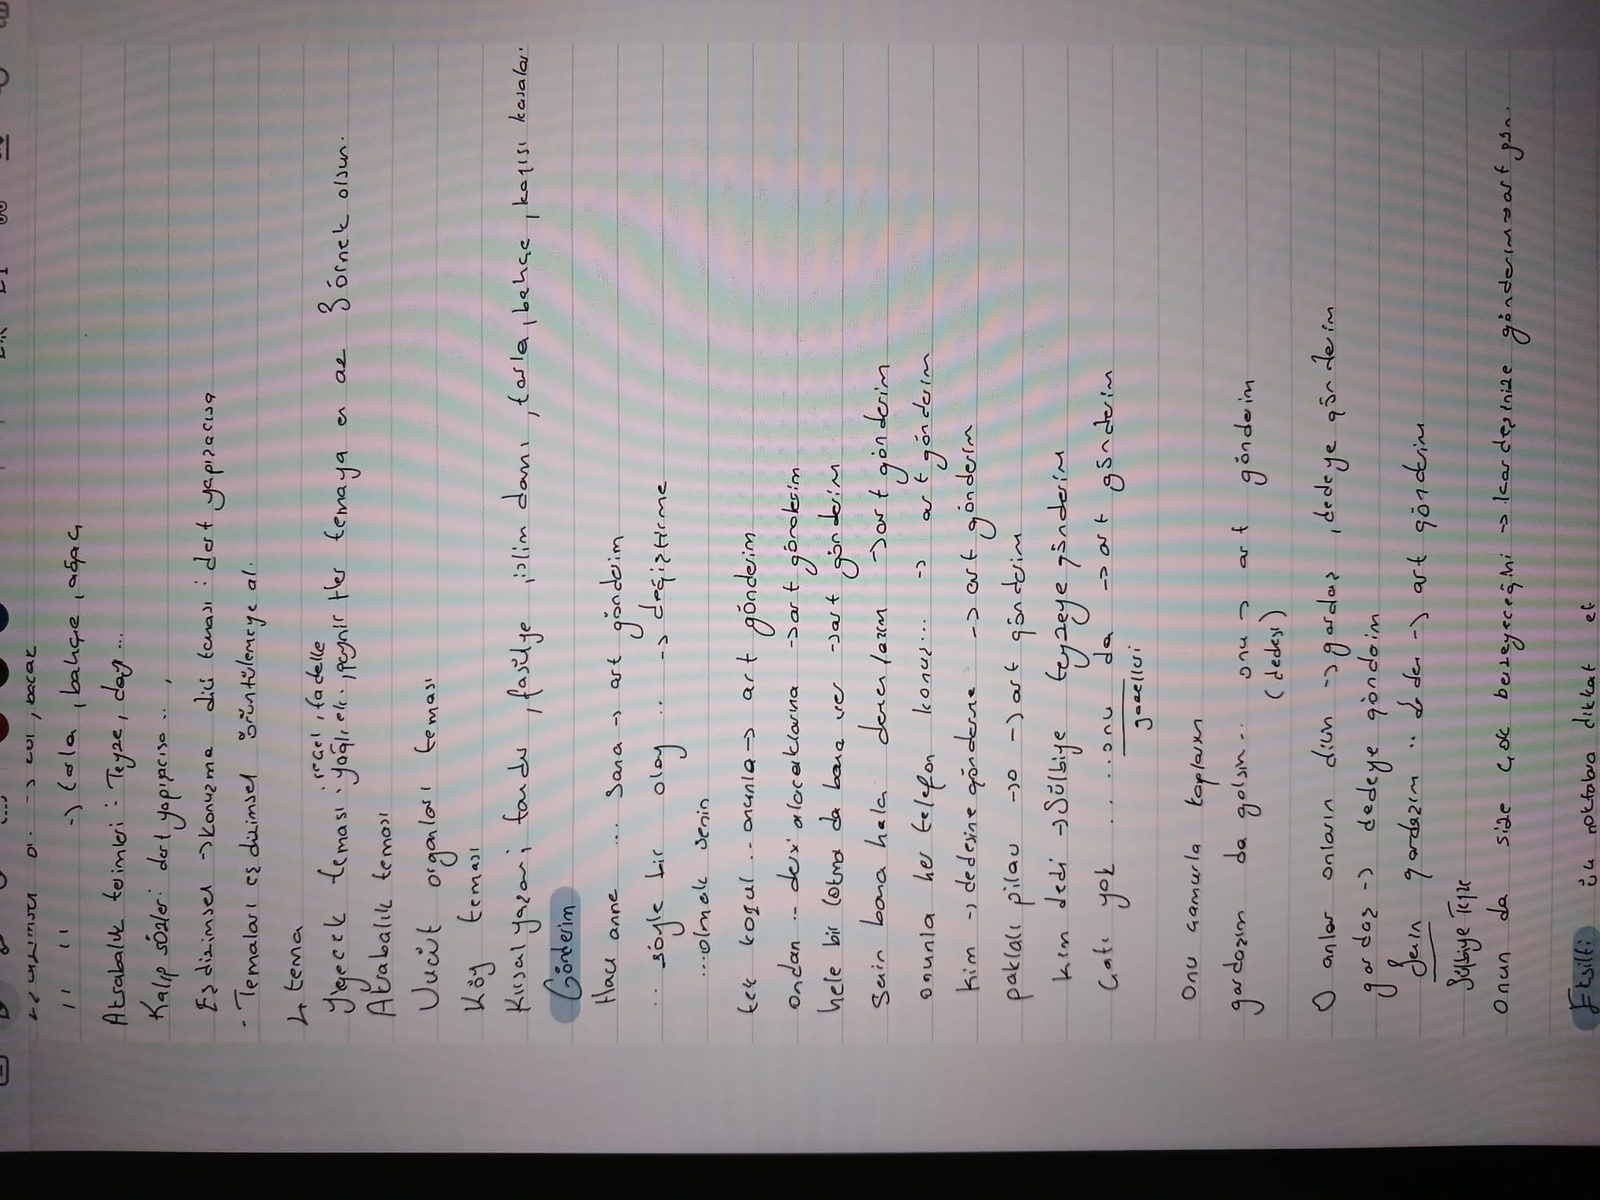 .. -> evi, bacak
" " -> tarla, bahçe, ağaç
Akrabalık terimleri: Teyze, dayı...
Kalıp sözler: dert yapıpıcısı..,
Eşdizimsel -> konuşma dili tanası: dert yapızacısa
- Temaları eşdizimsel örüntülemeye al.
4 tema
: reçel, sadelle
Yiyecek teması: yağlı ek., peynir Her temaya en az 3 örnek olsun.
Akrabalık teması
Vücut organları teması
Köy teması
Kırsal yaşam; tandır, fasülye, islim damı, tarla, bahçe, kayısı kasaları
Gönderim
Hau anne ... Sana -> art gönderim
.. söyle bir olay .. -> değiştirme
...olmak senin
tek koşul .. onunla -> art gönderim
ondan .. dersi alacaklarına -> art gönderim
hele bir lokma da bana ver -> art gönderim
Senin bana hala demen lazım -> art gönderim
onunla her telefon konuş... -> art gönderim
Kim -> dedesine gönderme -> art gönderim
paklalı pilav -> o -> art gönderim
kim dedi -> Sülbiye teyzeye gönderim
Çatı yok ... onu da -> art gönderim
gazelleri
Onu çamurla kaplarım
gardaşım da galsın.. onu -> art gönderim
(dedesi)
O onlar onların dilim -> gardaş, dedeye gönderim
gardaş -> dedeye gönderim
Senin gardaşım .. den -> art gönderim
Sülbiye Teyze
Onun da size çok benzeyeceğini -> kardeşinize gönderim -> art gön.
Eksilti: şu noktalara dikkat et